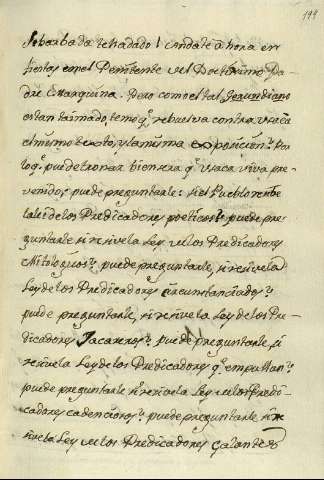 199
te ha dado! Andate ahora en
fiestas en el Penitente del Doctissimo Pa-
dre Marquina. Pero como el tal Gerundiano
es tan taimado, temo q.e rebuelva contra
el mismo texto, y la misma exposicion: Pa-
lo q.e puede tronar bien sera q.e Vsaca viva pre-
venido; puede preguntarle: si el Pueblo recibe
la lei de los Predicadores poeticos? puede pre-
guntarle si recive la Ley de los Predicadores
Mitologicos? puede preguntarle, si recive la
Ley de los Predicadores circunstanciados?
puede preguntarle, si recive la Ley de los Pre-
dicadores Jacareros? puede preguntarle, si
recive la Ley de los Predicadores q.e
puede preguntarle si recive la Ley de los Predi-
cadores cadenciosos? puede preguntarle si re-
cive la Ley de los Predicadores Galantes